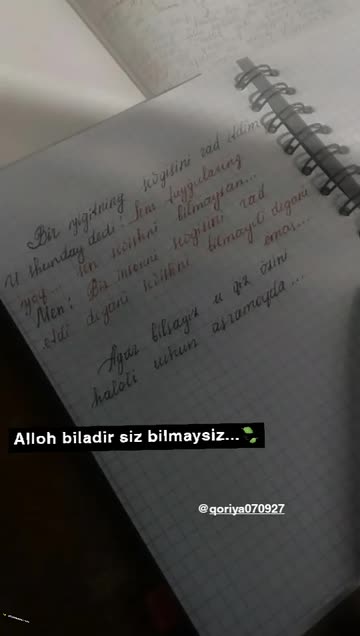 Bir yigitning sevgisini rad etdim
U shunday dedi: Sen tuyg'ularing
yo'q... sen sevishni bilmaysan...
Men: Bir insonni sevgisini rad
etdi degani sevishni bilmaydi degani
emas...
Agar bilsagiz u qiz o'zini
haloli uchun asramoqda...
Alloh biladir siz bilmaysiz...
@qoriya070927